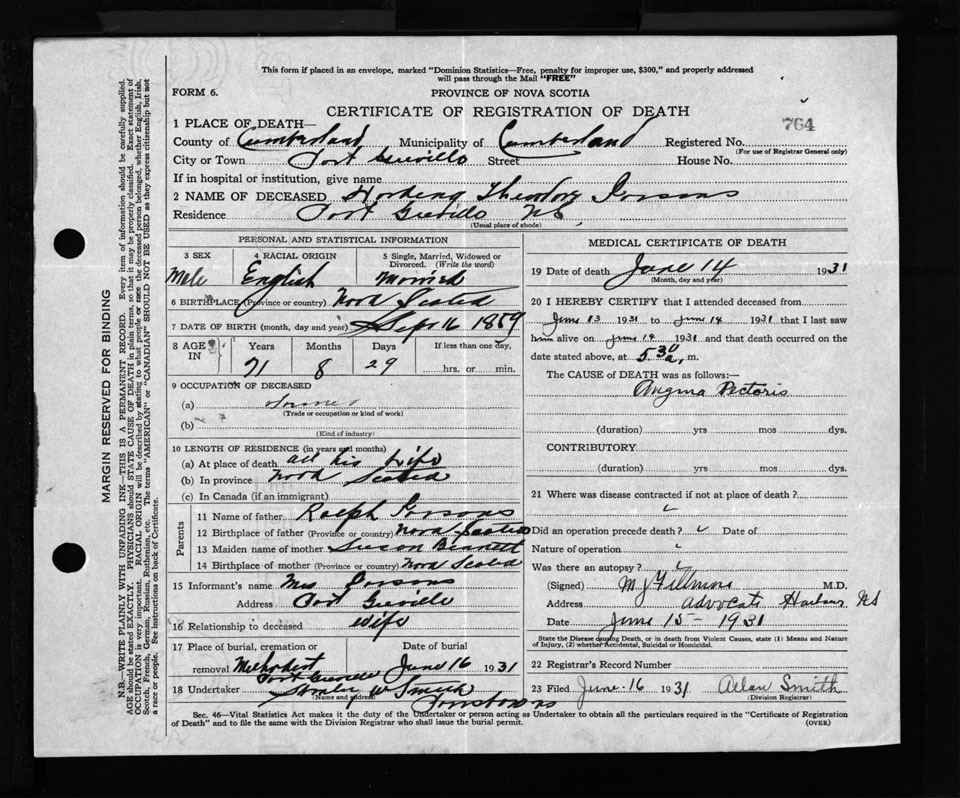 This form if placed in an envelope, marked "Dominion Statistics—Free, penalty for improper use, $300," and properly addressed
will pass through the Mail "FREE"
FORM 6.
PROVINCE OF NOVA SCOTIA
CERTIFICATE OF REGISTRATION OF DEATH
764
1 PLACE OF DEATH—
County of Cumberland Municipality of Cumberland Registered No.
(For use of Registrar General only)
City or Town Port Greville Street House No.
If in hospital or institution, give name
2 NAME OF DECEASED Theodore Parsons
Residence Port Greville NS
(Usual place of abode)
PERSONAL AND STATISTICAL INFORMATION
3 SEX 4 RACIAL ORIGIN 5 Single, Married, Widowed or Divorced. (Write the word)
Male English Married
6 BIRTHPLACE (Province or country) Nova Scotia
7 DATE OF BIRTH (month, day and year) Sept 16 1859
8 AGE IN Years Months Days If less than one day,
71 8 29 hrs. or min.
9 OCCUPATION OF DECEASED
(a)
(Trade or occupation or kind of work)
(b)
(Kind of industry)
10 LENGTH OF RESIDENCE (in years and months)
(a) At place of death all his life
(b) In province Nova Scotia
(c) In Canada (if an immigrant)
Parents
11 Name of father Ralph Parsons
12 Birthplace of father (Province or country) Nova Scotia
13 Maiden name of mother Susan Bennett
14 Birthplace of mother (Province or country) Nova Scotia
15 Informant's name Mrs Parsons
Address Port Greville
16 Relationship to deceased wife
17 Place of burial, cremation or removal Methodist Port Greville
Date of burial June 16 1931
18 Undertaker Stanley W Smith
(Name and address)
Parrsboro NS
MEDICAL CERTIFICATE OF DEATH
19 Date of death June 14 1931
(Month, day and year)
20 I HEREBY CERTIFY that I attended deceased from
June 13 1931 to June 14 1931 that I last saw
him alive on June 14 1931 and that death occurred on the
date stated above, at 5 30 a. m.
The CAUSE OF DEATH was as follows:—
Angina Pectoris
(duration) yrs mos dys.
CONTRIBUTORY
(duration) yrs mos dys.
21 Where was disease contracted if not at place of death?
Did an operation precede death? Date of
Nature of operation
Was there an autopsy?
(Signed) Fillmore M.D.
Address Advocate Harbour NS
Date June 15 - 1931
State the Disease causing Death, or in death from Violent Causes, state (1) Means and Nature of Injury, (2) whether Accidental, Suicidal or Homicidal.
22 Registrar's Record Number
23 Filed June 16 1931 Allan Smith
(Division Registrar)
Sec. 46—Vital Statistics Act makes it the duty of the Undertaker or person acting as Undertaker to obtain all the particulars required in the "Certificate of Registration
of Death" and to file the same with the Division Registrar who shall issue the burial permit. (OVER)
MARGIN RESERVED FOR BINDING
N.B.—WRITE PLAINLY WITH UNFADING INK—THIS IS A PERMANENT RECORD. Every item of information should be carefully supplied.
AGE should be stated EXACTLY. PHYSICIANS should STATE CAUSE OF DEATH in plain terms, so that it may be properly classified. Exact statement of
OCCUPATION is very important. RACIAL ORIGIN will be described by stating to what people or race the deceased person belonged, whether English, Irish,
Scotch, French, German, Russian, Ruthenian, etc. The terms "AMERICAN" or "CANADIAN" SHOULD NOT BE USED as they express citizenship but not
a race or people. See instructions on back of Certificate.